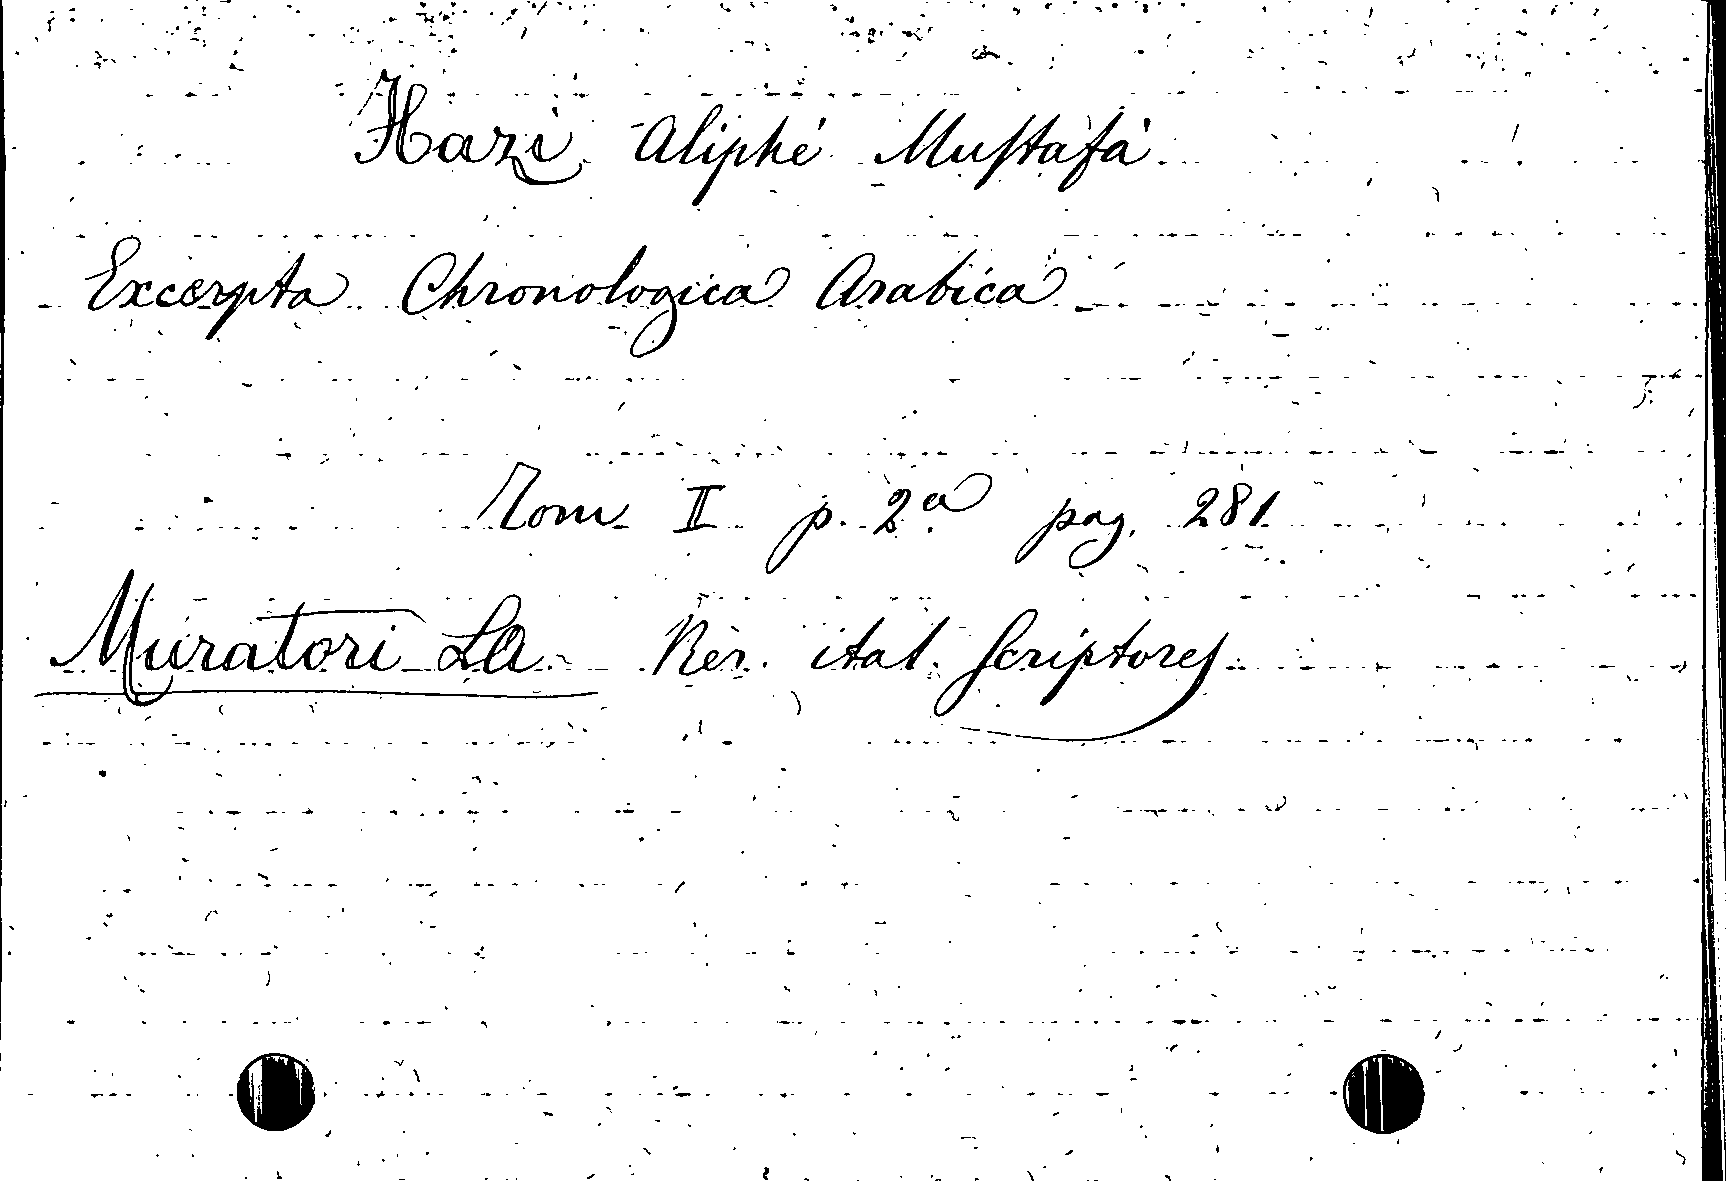 Hazi Aliphé Mustafà
Excerpta Chronologica Arabica
Tom II p. 2a pag. 281
Muratori LA. Rer. ital. Scriptores